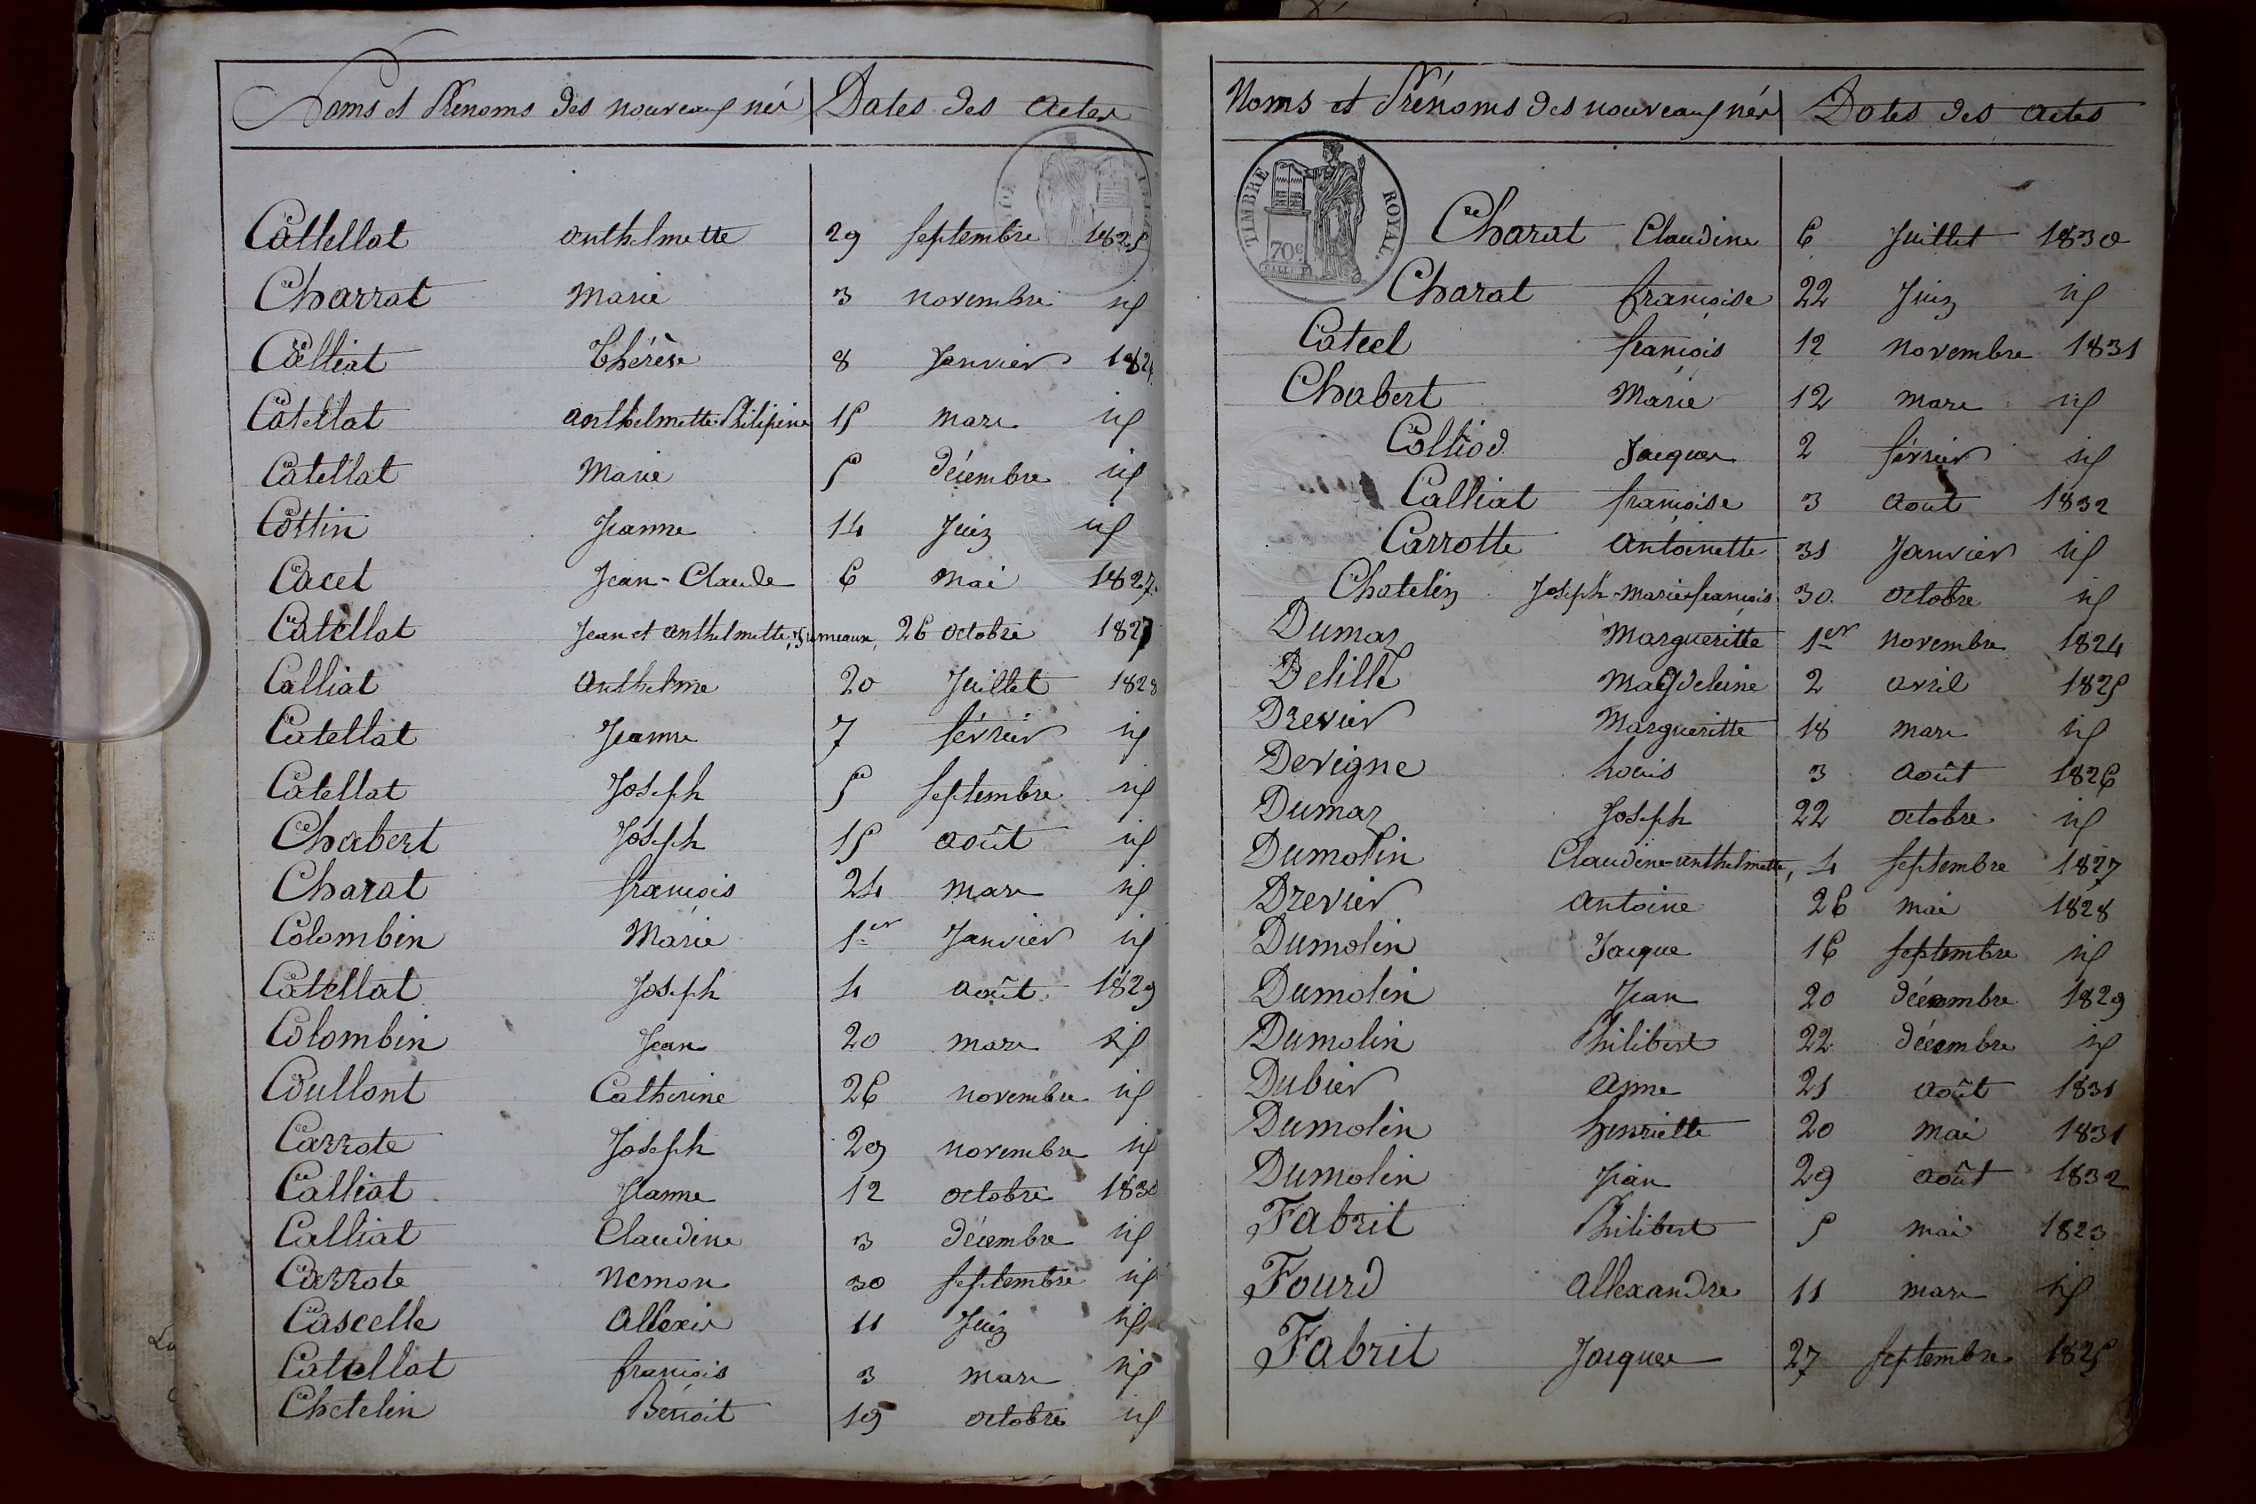 Noms et Prénoms des nouveaux nés Dates des actes
Catellat anthelmette 29 septembre 1825
Charrat Marie 3 novembre id
Calliat Thérèse 8 Janvier 182
Catellat anthelmette Philipine 15 mars id
Catellat Marie 5 décembre id
Cottin Jeanne 14 Juin id
Cacet Jean-Claude 6 mai 1827
Catellat Jean et anthelmette, Jumeaux, 26 octobre 1827
Calliat anthelme 20 Juillet 1828
Catellat Jeanne 7 février id
Catellat Joseph 5 septembre id
Chabert Joseph 15 août id
Charat françois 24 mars id
Colombin Marie 1er Janvier id
Catellat Joseph 4 août 1829
Colombin Jean 20 mars id
Coullont Catherine 26 novembre id
Carrote Joseph 29 novembre id
Calliat Jeanne 12 octobre 1830
Calliat Claudine 3 décembre id
Carrote 30 septembre id
Cascelle Allexis 11 Juin id
Catellat françois 3 mars id
Chatelin Benoit 19 octobre id
Noms et Prénoms des nouveaux nés Dates des actes
TIMBRE ROYAL.
70c
Charat Claudine 6 Juillet 1830
Charat françoise 22 Juin id
Catcel françois 12 novembre 1831
Chabert Marie 12 mars id
Colliod Jacques 2 février id
Calliat françoise 3 aout 1832
Carrotte antoinette 31 Janvier id
Chatelin Joseph-Marie françois 30 octobre id
Dumas Margueritte 1er novembre 1824
Delille Magdeleine 2 avril 1825
Drevier Margueritte 18 mars id
Devigne Louis 3 août 1826
Dumas Joseph 22 octobre id
Dumolin Claudine-anthelmette, 4 septembre 1827
Drevier antoine 26 mai 1828
Dumolin Jacque 16 septembre id
Dumolin Jean 20 décembre 1829
Dumolin Philibert 22 décembre id
Dubier anne 21 août 1831
Dumolin henriette 20 mai 1831
Dumolin Jean 29 août 1832
Fabrit Philibert 5 mai 1823
Fourd allexandre 11 mars id
Fabrit Jacques 27 septembre 1825